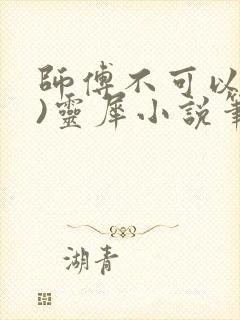 師傅不可以
)靈犀小說筆
湖青